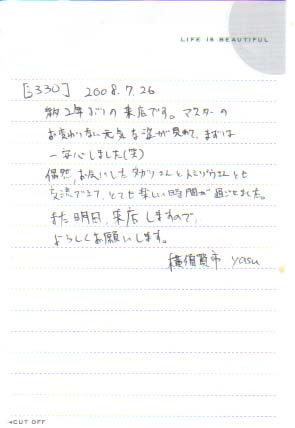 LIFE IS BEAUTIFUL
[3330] 2008.7.26
約2年ぶりの来店です。マスターの
お変わりない元気な姿が見れて、まずは
一安心しました(笑)
偶然、お会いした さんと さんとも
交流できて、とても楽しい時間が過ごせました。
また明日、来店しますので、
よろしくお願いします。
横須賀市 yasu
CUT OFF